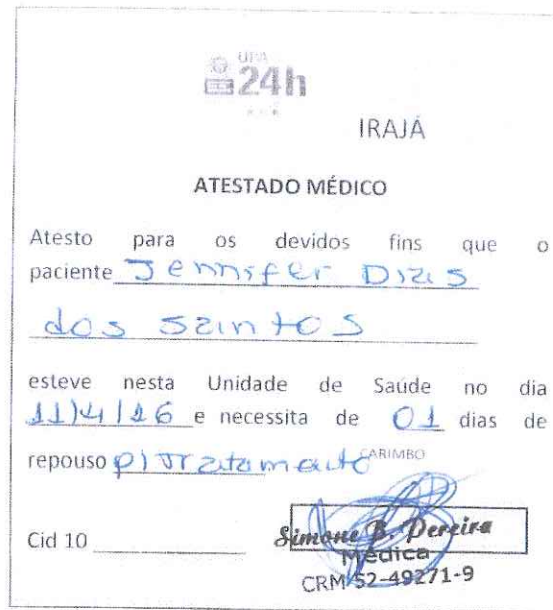 UPA
24h
IRAJÁ
ATESTADO MÉDICO
Atesto para os devidos fins que o
paciente Jennifer Dias
dos Santos
esteve nesta Unidade de Saúde no dia
11/4/16 e necessita de 01 dias de
repouso p/ tratamento CARIMBO
Simone B. Pereira
Cid 10
Médica
CRM 52-49271-9